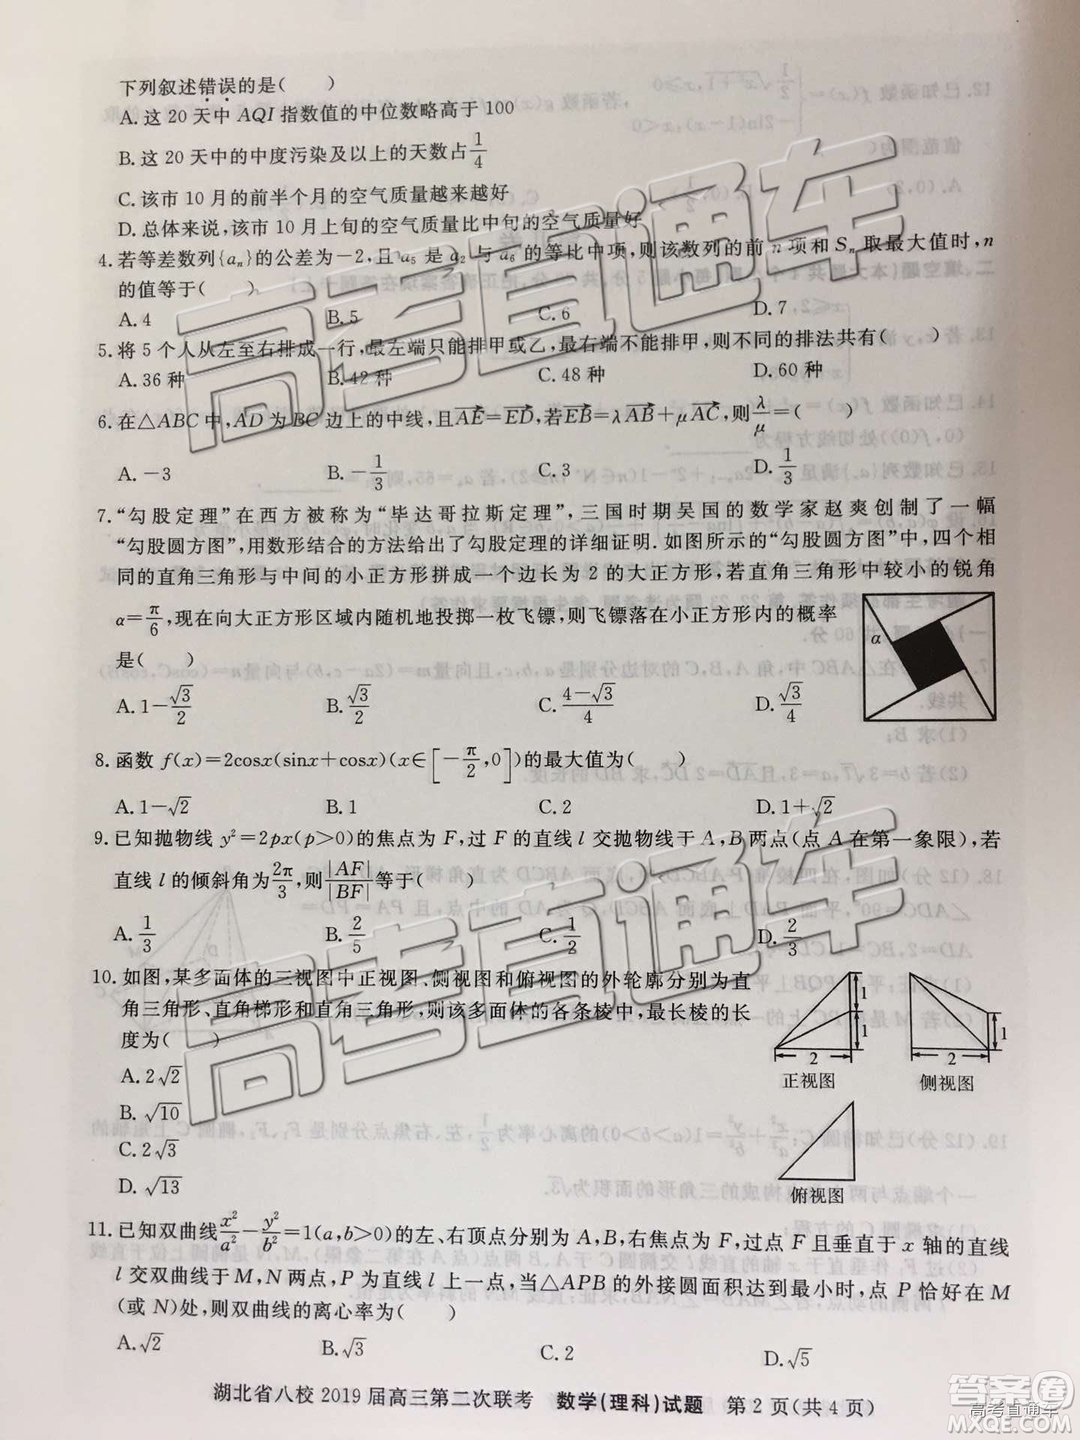 下列叙述错误的是(  )
A.这20天中AQI指数值的中位数略高于100
B.这20天中的中度污染及以上的天数占1/4
C.该市10月的前半个月的空气质量越来越好
D.总体来说,该市10月上旬的空气质量比中旬的空气质量好
4.若等差数列{aₙ}的公差为-2,且a₅是a₂与a₆的等比中项,则该数列的前n项和Sₙ取最大值时,n
的值等于(  )
A.4 B.5 C.6 D.7
5.将5个人从左至右排成一行,最左端只能排甲或乙,最右端不能排甲,则不同的排法共有(  )
A.36种 B.42种 C.48种 D.60种
6.在△ABC中,AD为BC边上的中线,且AE→=ED→,若EB→=λAB→+μAC→,则λ/μ=(  )
A.-3 B.-1/3 C.3 D.1/3
7.“勾股定理”在西方被称为“毕达哥拉斯定理”,三国时期吴国的数学家赵爽创制了一幅
“勾股圆方图”,用数形结合的方法给出了勾股定理的详细证明.如图所示的“勾股圆方图”中,四个相
同的直角三角形与中间的小正方形拼成一个边长为2的大正方形,若直角三角形中较小的锐角
α=π/6,现在向大正方形区域内随机地投掷一枚飞镖,则飞镖落在小正方形内的概率
是(  )
α
A.1-√3/2 B.√3/2 C.(4-√3)/4 D.√3/4
8.函数f(x)=2cosx(sinx+cosx)(x∈[-π/2,0])的最大值为(  )
A.1-√2 B.1 C.2 D.1+√2
9.已知抛物线y²=2px(p>0)的焦点为F,过F的直线l交抛物线于A,B两点(点A在第一象限),若
直线l的倾斜角为2π/3,则|AF|/|BF|等于(  )
A.1/3 B.2/5 C.1/2 D.2/3
10.如图,某多面体的三视图中正视图、侧视图和俯视图的外轮廓分别为直
角三角形、直角梯形和直角三角形,则该多面体的各条棱中,最长棱的长
度为(  )
A.2√2
B.√10
C.2√3
D.√13
1
1
2
正视图
1
2
侧视图
俯视图
11.已知双曲线x²/a²-y²/b²=1(a,b>0)的左、右顶点分别为A,B,右焦点为F,过点F且垂直于x轴的直线
l交双曲线于M,N两点,P为直线l上一点,当△APB的外接圆面积达到最小时,点P恰好在M
(或N)处,则双曲线的离心率为(  )
A.√2 B.√3 C.2 D.√5
湖北省八校2019届高三第二次联考 数学(理科)试题 第2页(共4页)
高考直通车
高考直通车
高考直通车
答案圈
MXQE.COM
高考直通车